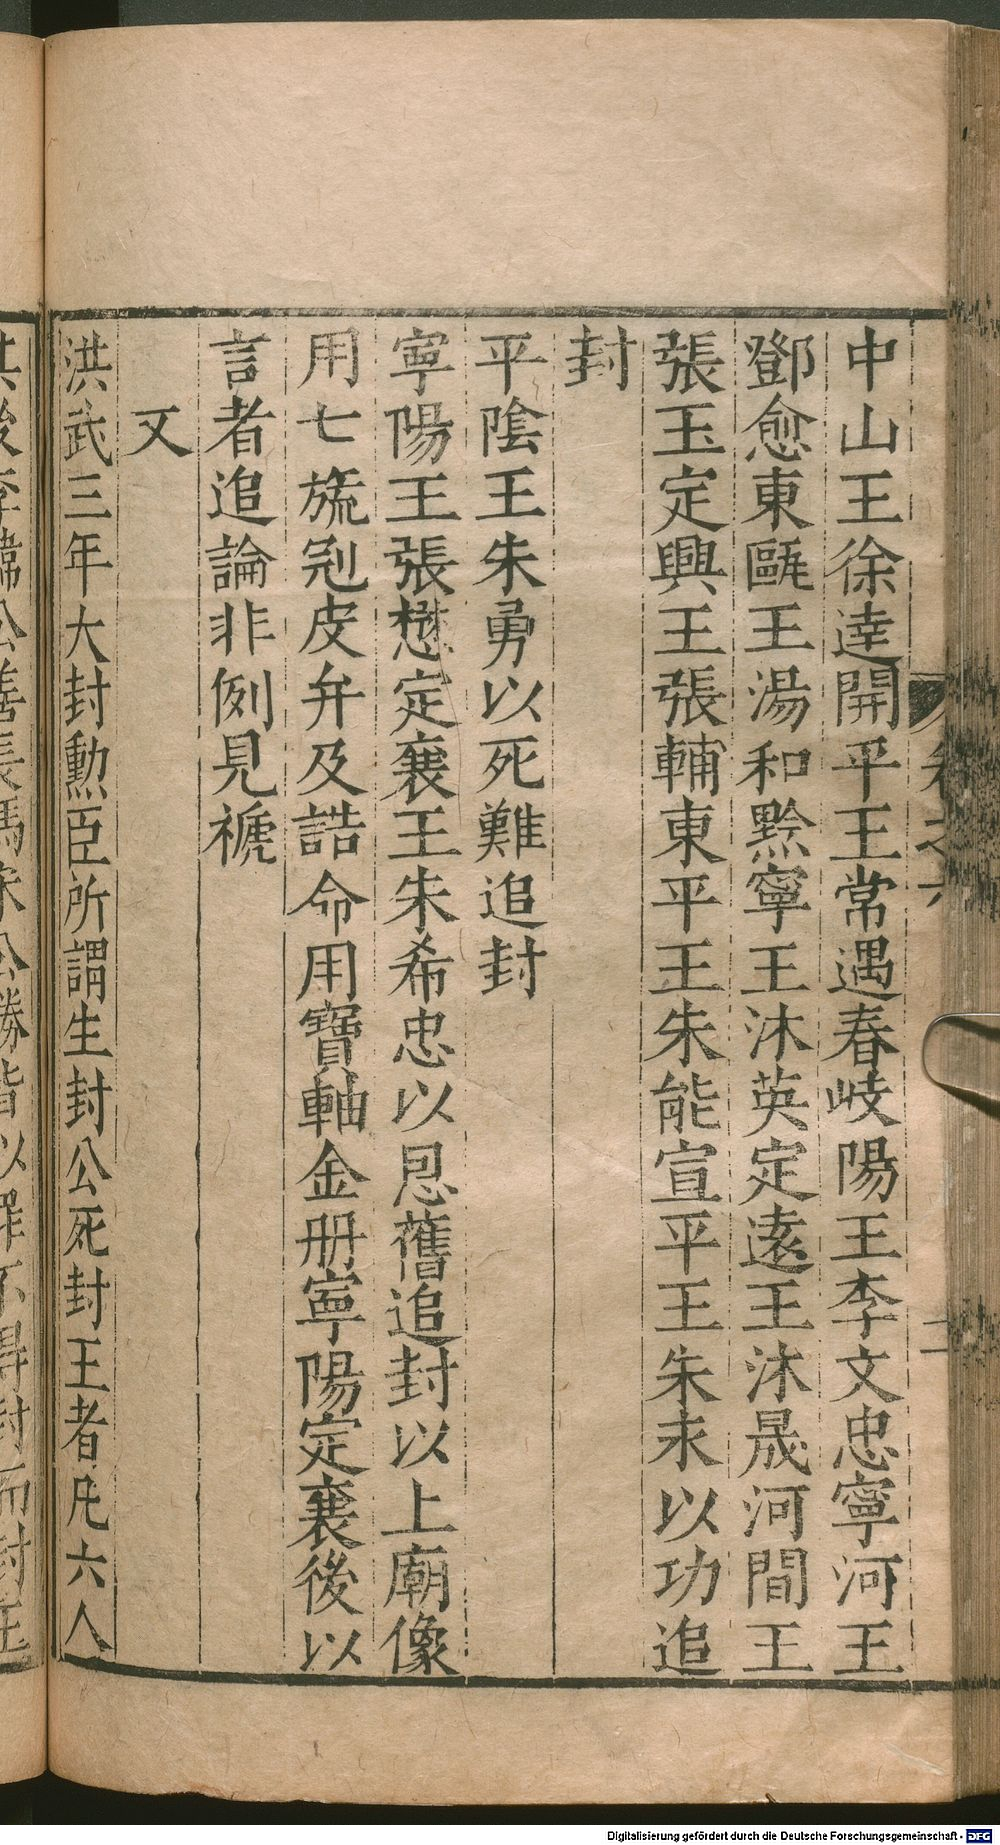 中山王徐達開平王常遇春岐陽王李文忠寧河王
鄧愈東甌王湯和黔寧王沐英定遠王沐晟河間王
張玉定興王張輔東平王朱能宣平王朱永以功追
封
平陰王朱勇以死難追封
寧陽王張懋定襄王朱希忠以恩舊追封以上廟像
用七旒冠皮弁及誥命用寶軸金册寧陽定襄後以
言者追論非例見褫
又
洪武三年大封勲臣所謂生封公死封王者凡六人
Digitalisierung gefördert durch die Deutsche Forschungsgemeinschaft - DFG